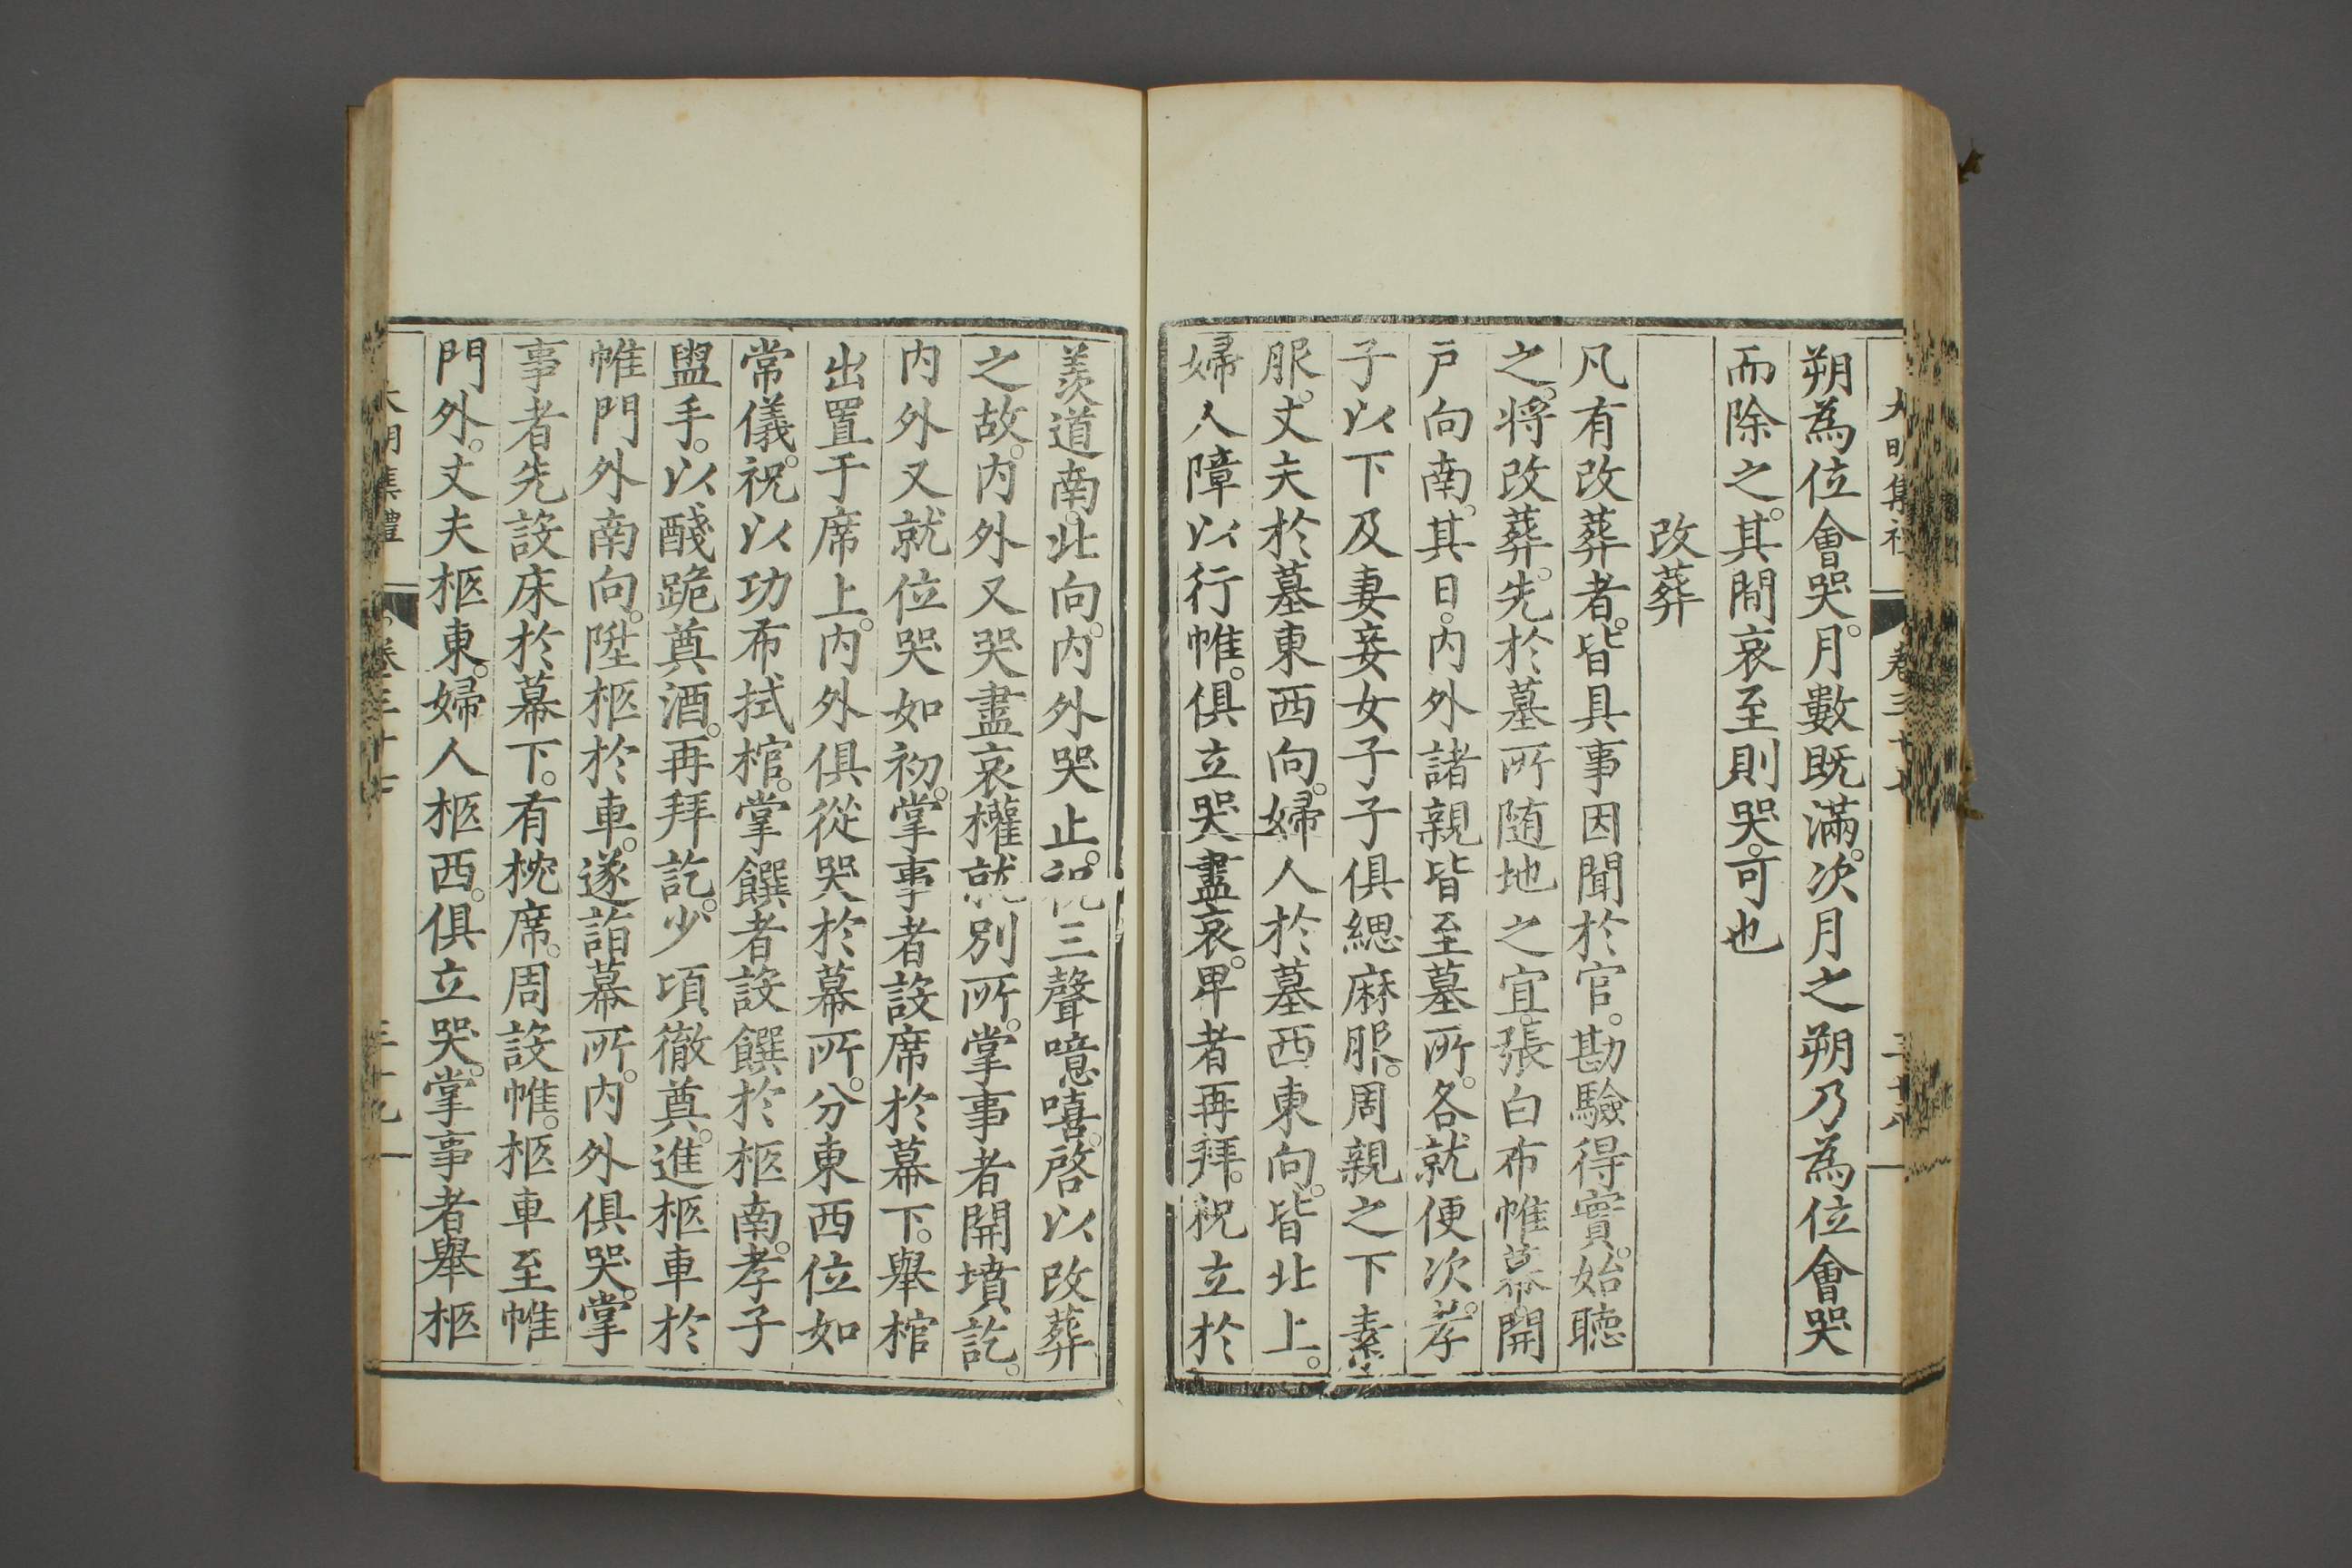 大明集禮 卷三十七 三十八
朔為位會哭。月數既滿。次月之朔乃為位會哭
而除之。其間哀至則哭。可也
改葬
凡有改葬者。皆具事因聞於官。勘驗得實。始聽
之。將改葬。先於墓所隨地之宜。張白布帷幕。開
戶向南。其日。內外諸親皆至墓所。各就便次。孝
子以下及妻妾女子子俱緦麻服。周親之下素
服。丈夫於墓東西向。婦人於墓西東向。皆北上。
婦人障以行帷。俱立哭盡哀。卑者再拜。祝立於
羨道南。北向。內外哭止。祝三聲噫嘻。啓以改葬
之故。內外又哭盡哀權就別所。掌事者開墳訖。
內外又就位哭如初。掌事者設席於幕下。舉棺
出置于席上。內外俱從哭於幕所。分東西位如
常儀。祝以功布拭棺。掌饌者設饌於柩南。孝子
盥手。以醆跪奠酒。再拜訖。少頃徹奠。進柩車於
帷門外南向。陞柩於車。遂詣幕所。內外俱哭。掌
事者先設床於幕下。有枕席。周設帷。柩車至帷
門外。丈夫柩東。婦人柩西。俱立哭。掌事者舉柩
大明集禮 卷三十七 三十九